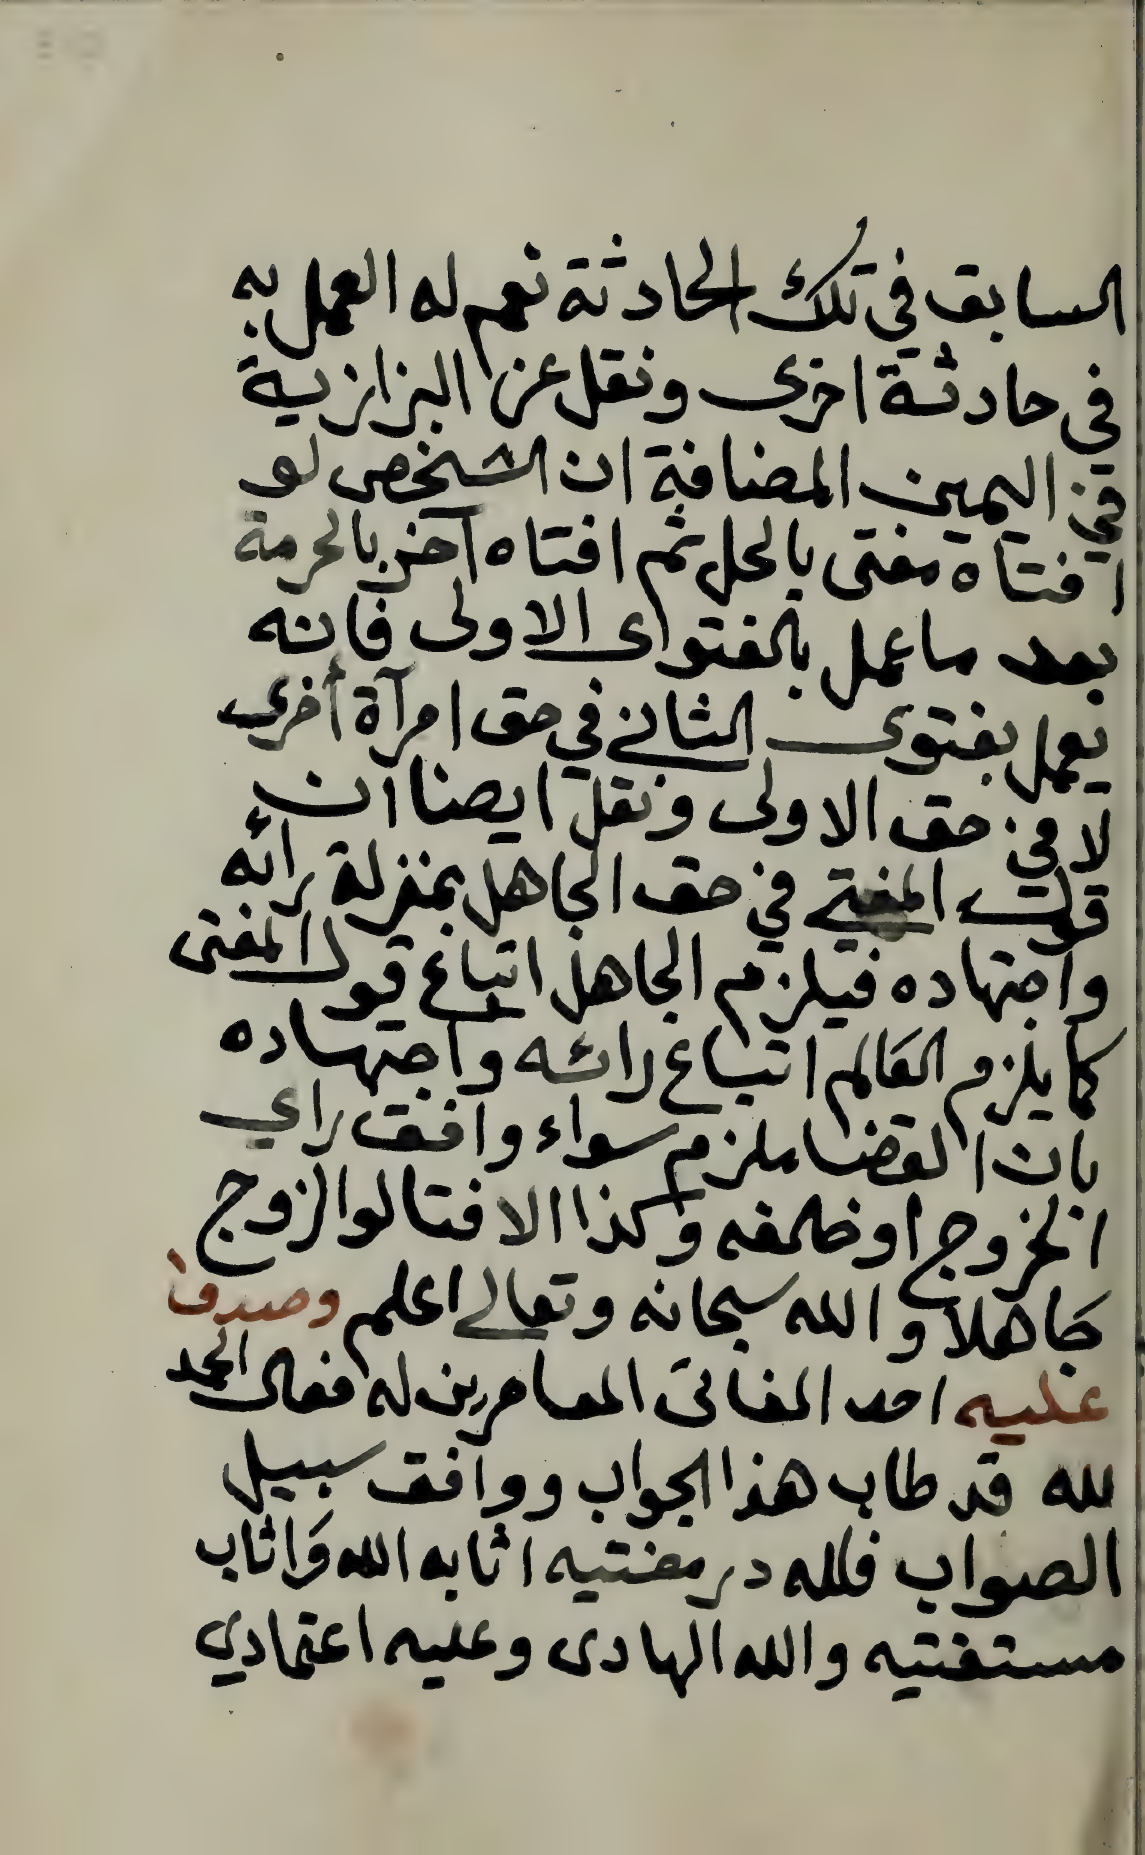 السابق في تلك الحادثة نعم له العمل به
في حادثة اخرى ونقل عن البزازية
في اليمين المضافة ان الشخص لو
افتاه مفتى بالحل ثم افتاه آخر بالحرمة
بعد ما عمل بالفتوى الاولى فانه
يعمل بفتوى الثاني في حق امرآة أخرى
لا في حق الاولى ونقل ايضا ان
قول المفتي في حق الجاهل بمنزلة رائه
واجتهاده فيلزم الجاهل اتباع قول المفتى
كما يلزم العالم اتباع رائه واجتهاده
بان القضا ملزم سواء وافق راي
الخروج او خالفه وكذا الافتا لو الزوج
جاهلا والله سبحانه وتعالى اعلم وصدف
عليه احد المفاتى المعاصرين له فقال الحمد
لله قد طاب هذا الجواب ووافق سبيل
الصواب فلله در مفتيه اثابه الله وَاثاب
مستفتيه والله الهادى وعليه اعتمادي